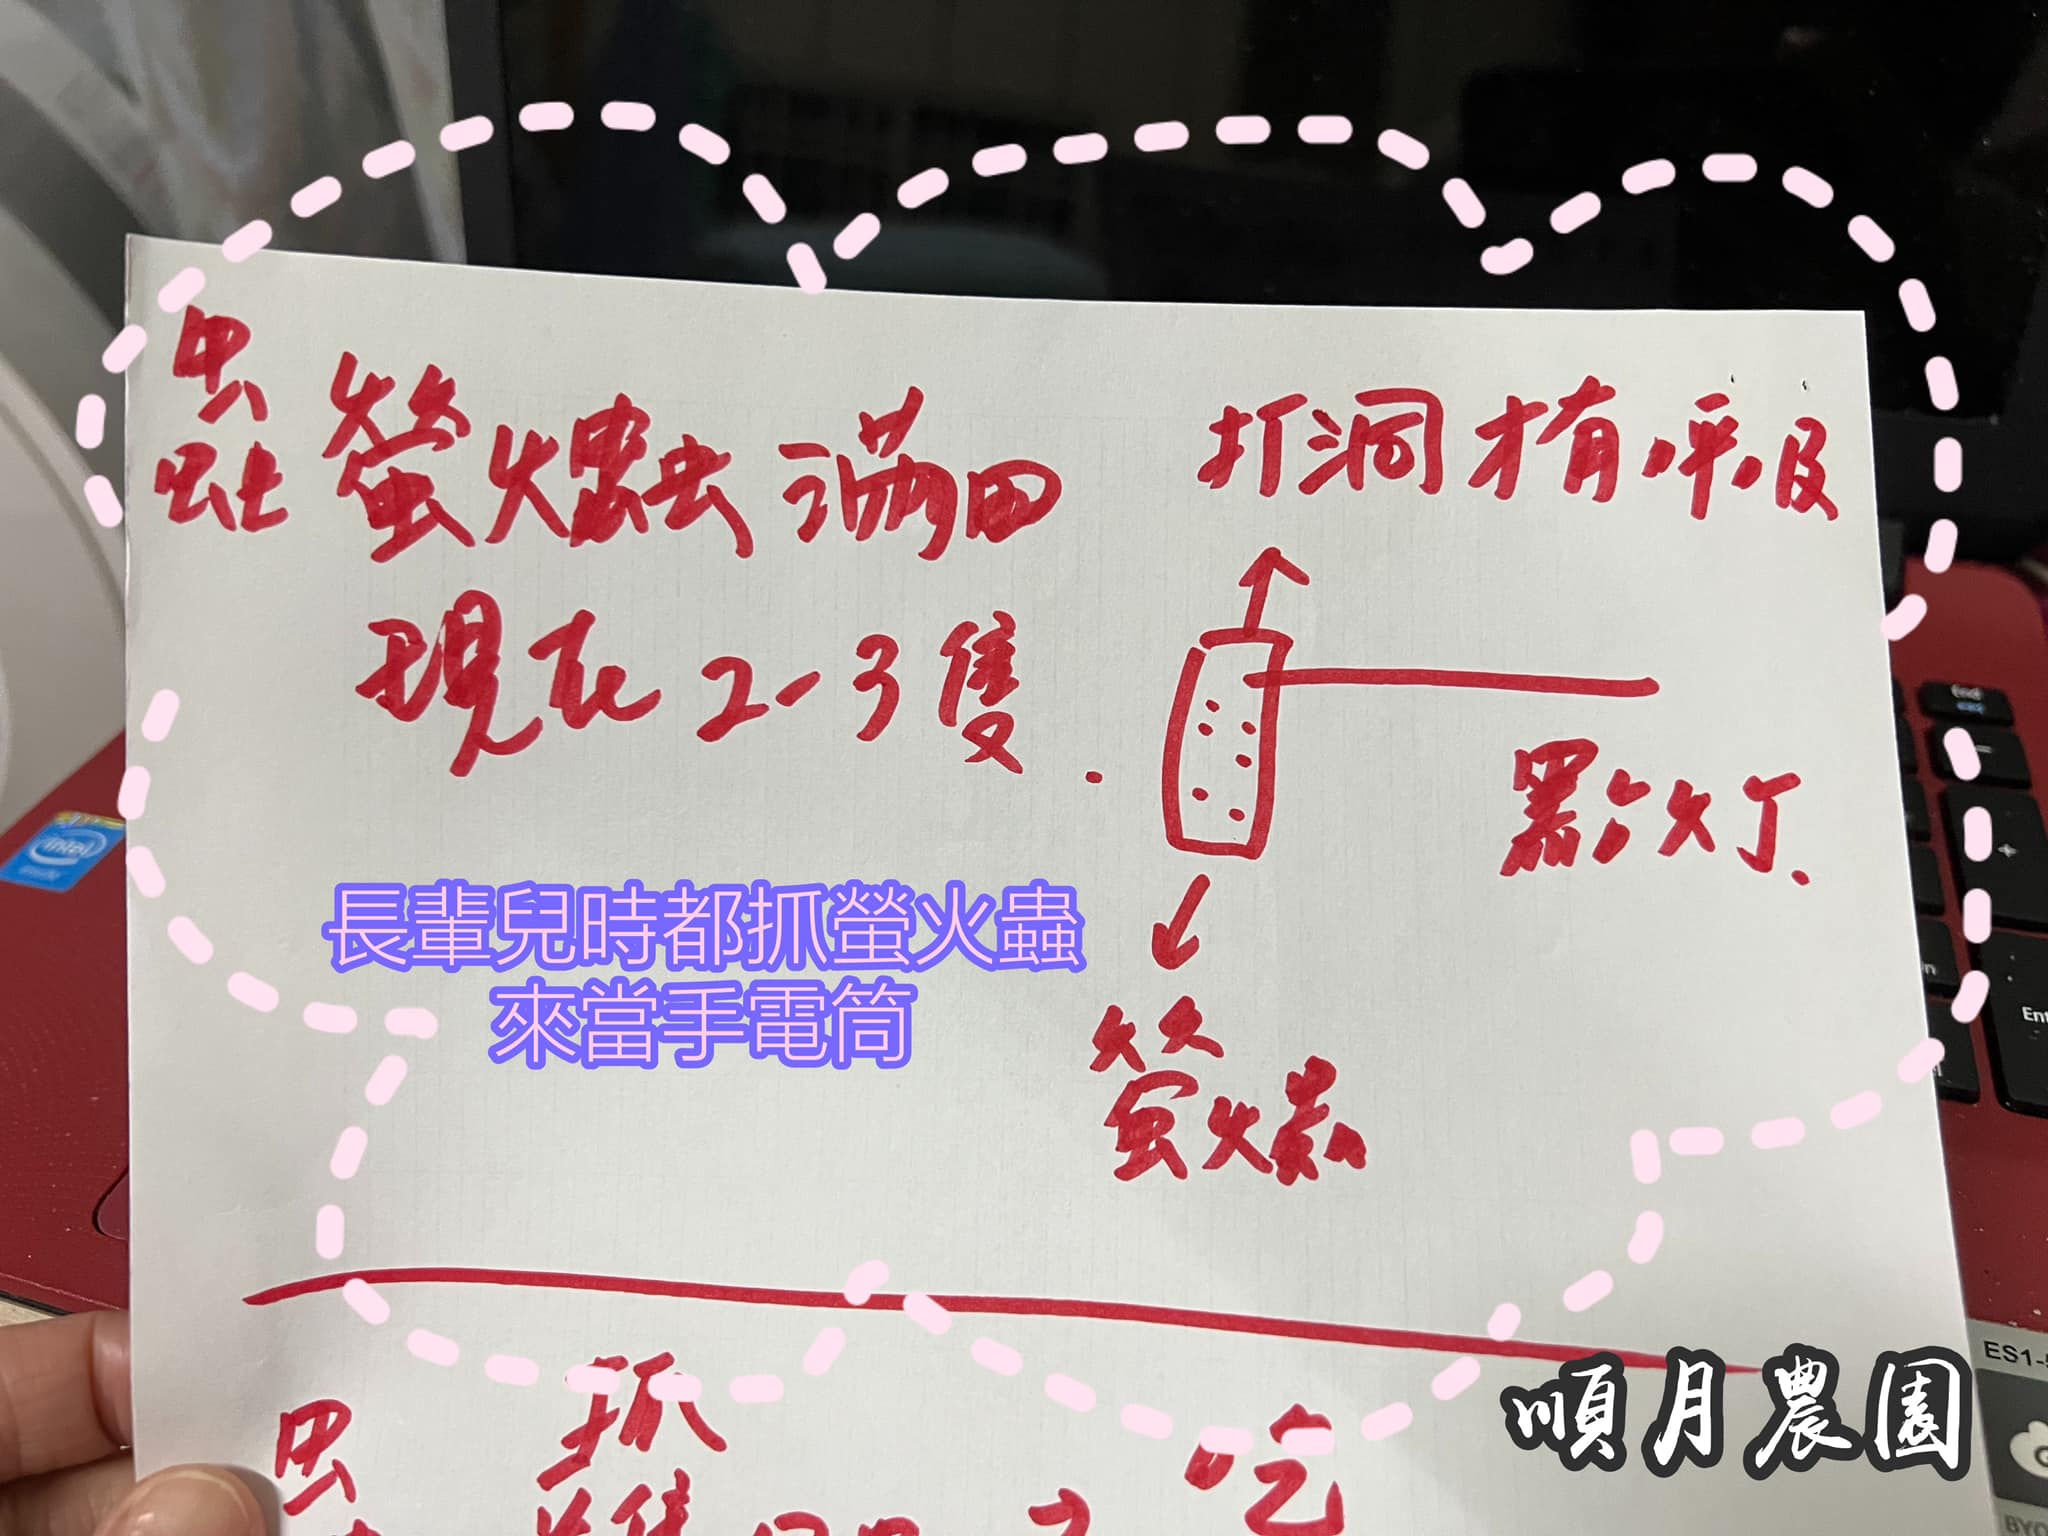 螢火蟲滿田
現在2-3隻.
打洞才有呼吸
點灯.
長輩兒時都抓螢火蟲
來當手電筒
螢火
抓
吃
順月農園
intel
End
Ent
ES1-5